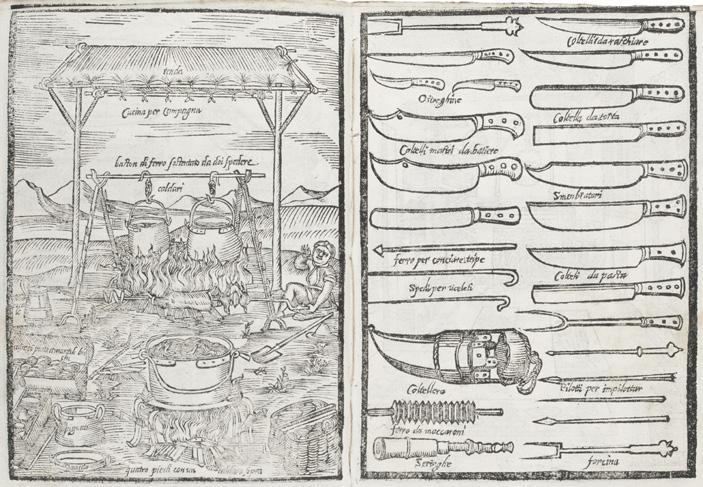 tenda
Cucina per Campagna
baston di ferro sostentato da doi spedere
caldari
pignatto
quatro piedi con un caldaro sopra
Coltelli da raschiare
Ostreghine
Coltelli da torta
Coltelli mastri da battere
Smenbratori
ferro per conciare stripe
Coltelli da pasta
Spedi per uceleti
Coltellero
Pilotti per impilottar
ferro da maccaroni
Siringhe
forcina